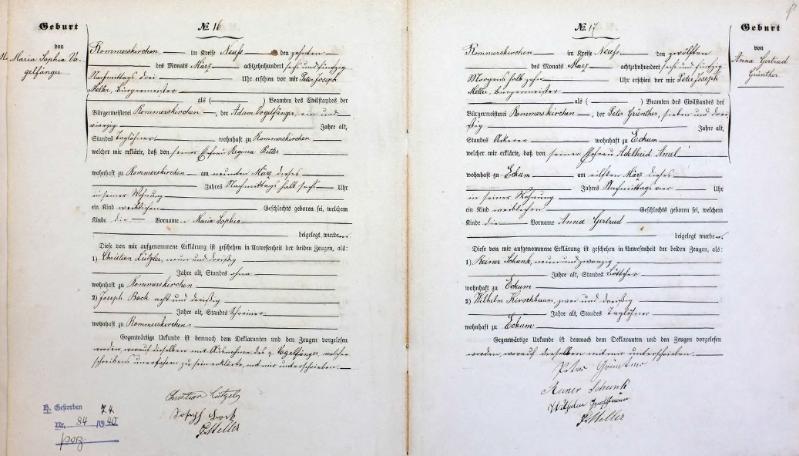 Geburt
von
Maria Sophia Vo-
gelsänger.
№ 16
Rommerskirchen — im Kreise Neuss den zehnten
des Monats März achtzehnhundert sechs und fünfzig
Nachmittags drei Uhr erschien vor mir Peter Joseph
Meller, Bürgermeister
als ( ) Beamten des Civilstandes der
Bürgermeisterei Rommerskirchen, der Adam Vogelsänger, ein und
vierzig Jahre alt,
Standes Taglöhner wohnhaft zu Rommerskirchen
welcher mir erklärte, daß von seiner Ehefrau Regina
wohnhaft zu Rommerskirchen am neunten März dieses
Jahres Nachmittags halb sechs Uhr
in seiner Wohnung
ein Kind weiblichen Geschlechts geboren sei, welchem
Kinde die Vorname Maria Sophia
beigelegt wurde
Diese von mir aufgenommene Erklärung ist geschehen in Anwesenheit der beiden Zeugen, als:
1) Christian Lützeler, neun und dreißig
Jahre alt, Standes ohne
wohnhaft zu Rommerskirchen
2) Joseph Bock, acht und dreißig
Jahre alt, Standes Schreiner
wohnhaft zu Rommerskirchen
Gegenwärtige Urkunde ist demnach dem Deklaranten und den Zeugen vorgelesen
worden, worauf dieselben mit Ausnahme des Vogelsänger, welcher
schreibens unerfahren zu sein erklärte, mit mir unterschrieben.
Joseph Bock
Meller
Gestorben
Nr. 84 1940
№ 17
Rommerskirchen — im Kreise Neuss den zwölften
des Monats März achtzehnhundert sechs und fünfzig
Morgens halb zehn Uhr erschien vor mir Peter Joseph
Meller, Bürgermeister
als ( ) Beamten des Civilstandes der
Bürgermeisterei Rommerskirchen, der Peter Günther, sieben und drei-
ßig Jahre alt,
Standes Ackerer wohnhaft zu Eckum
welcher mir erklärte, daß von seiner Ehefrau Adelheid
wohnhaft zu Eckum am elften März dieses
Jahres Nachmittags vier Uhr
in seiner Wohnung
ein Kind weiblichen Geschlechts geboren sei, welchem
Kinde die Vorname Anna Gertrud
beigelegt wurde
Diese von mir aufgenommene Erklärung ist geschehen in Anwesenheit der beiden Zeugen, als:
1) Rainer Schunk, neun und zwanzig
Jahre alt, Standes
wohnhaft zu Eckum
2) Wilhelm Kirschbaum, zwei und dreißig
Jahre alt, Standes Taglöhner
wohnhaft zu Eckum
Gegenwärtige Urkunde ist demnach dem Deklaranten und den Zeugen vorgelesen
worden, worauf dieselben mit mir unterschrieben.
Peter Günther
Rainer Schunk
Meller
Geburt
von
Anna Gertrud
Günther.